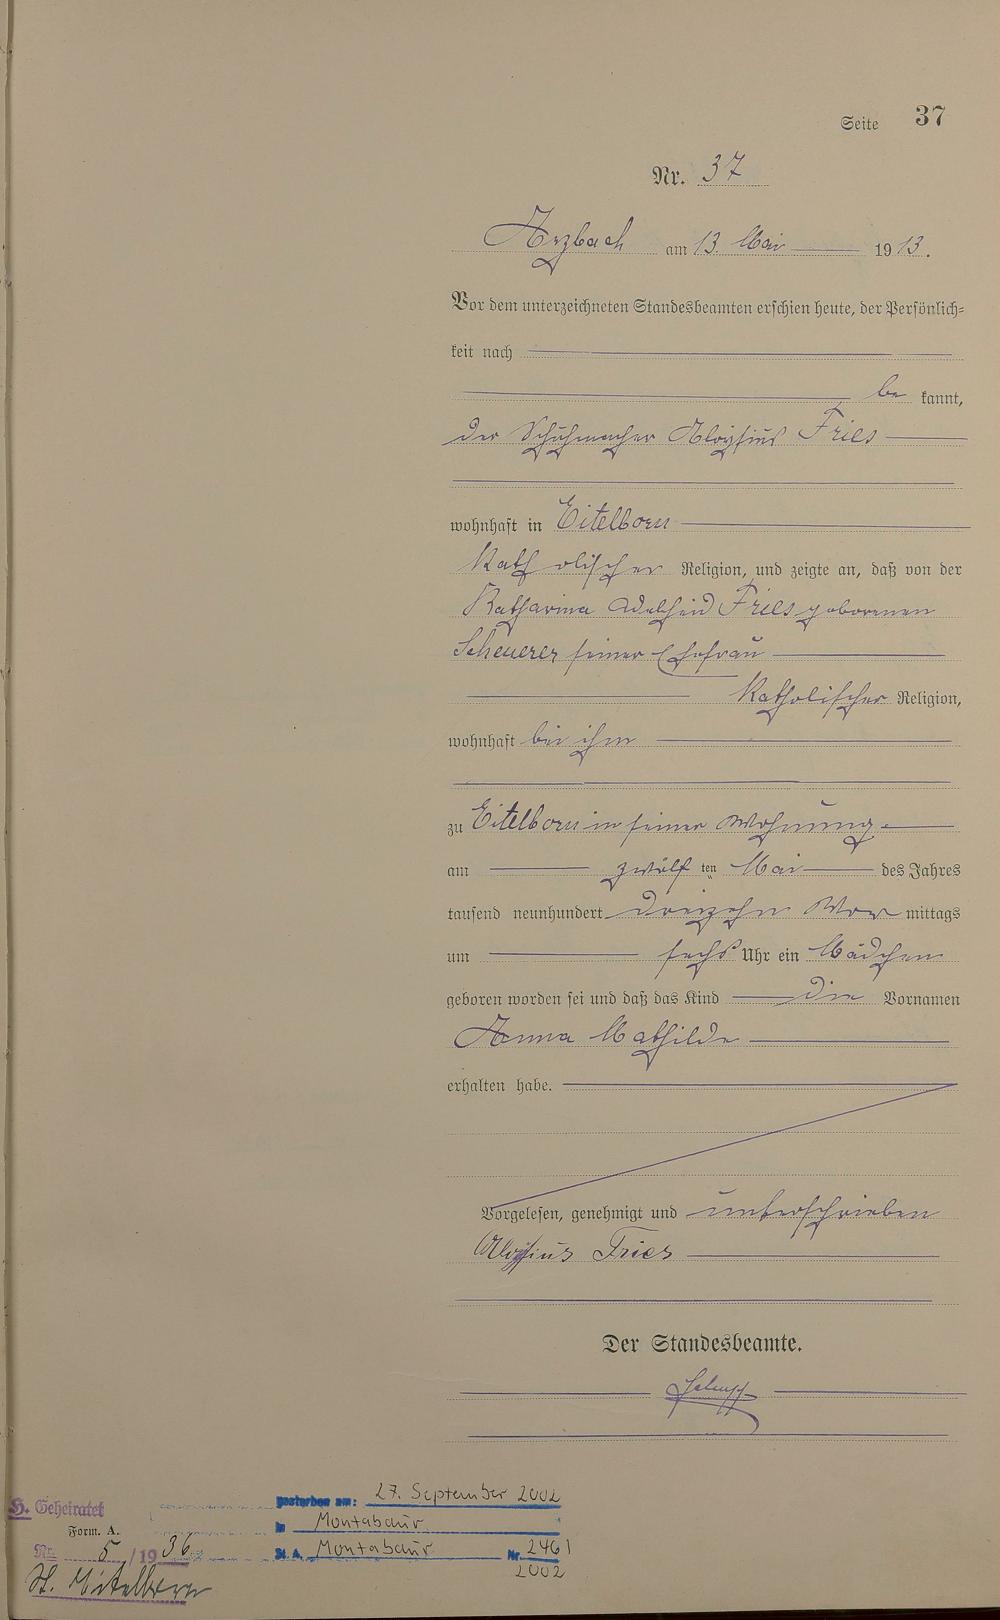 Seite 37
Nr. 37
Arzbach am 13. Mai 1913.
Vor dem unterzeichneten Standesbeamten erschien heute, der Persönlich=
keit nach
be kannt,
der Schuhmacher Aloysius Fries
wohnhaft in Eitelborn
katholischer Religion, und zeigte an, daß von der
Katharina Adelheid Fries geborenen
Scheuerer seiner Ehefrau
katholischer Religion,
wohnhaft bei ihm
zu Eitelborn in seiner Wohnung
am zwölf ten Mai des Jahres
tausend neunhundert dreizehn Vor mittags
um sechs Uhr ein Mädchen
geboren worden sei und daß das Kind die Vornamen
Anna Mathilde
erhalten habe.
Vorgelesen, genehmigt und unterschrieben
Aloysius Fries
Der Standesbeamte.
H. Geheiratet
gestorben am: 27. September 2002
Form. A.
in Montabaur
Nr. 5/1936
St. A. Montabaur Nr. 2461
2002
St. Eitelborn